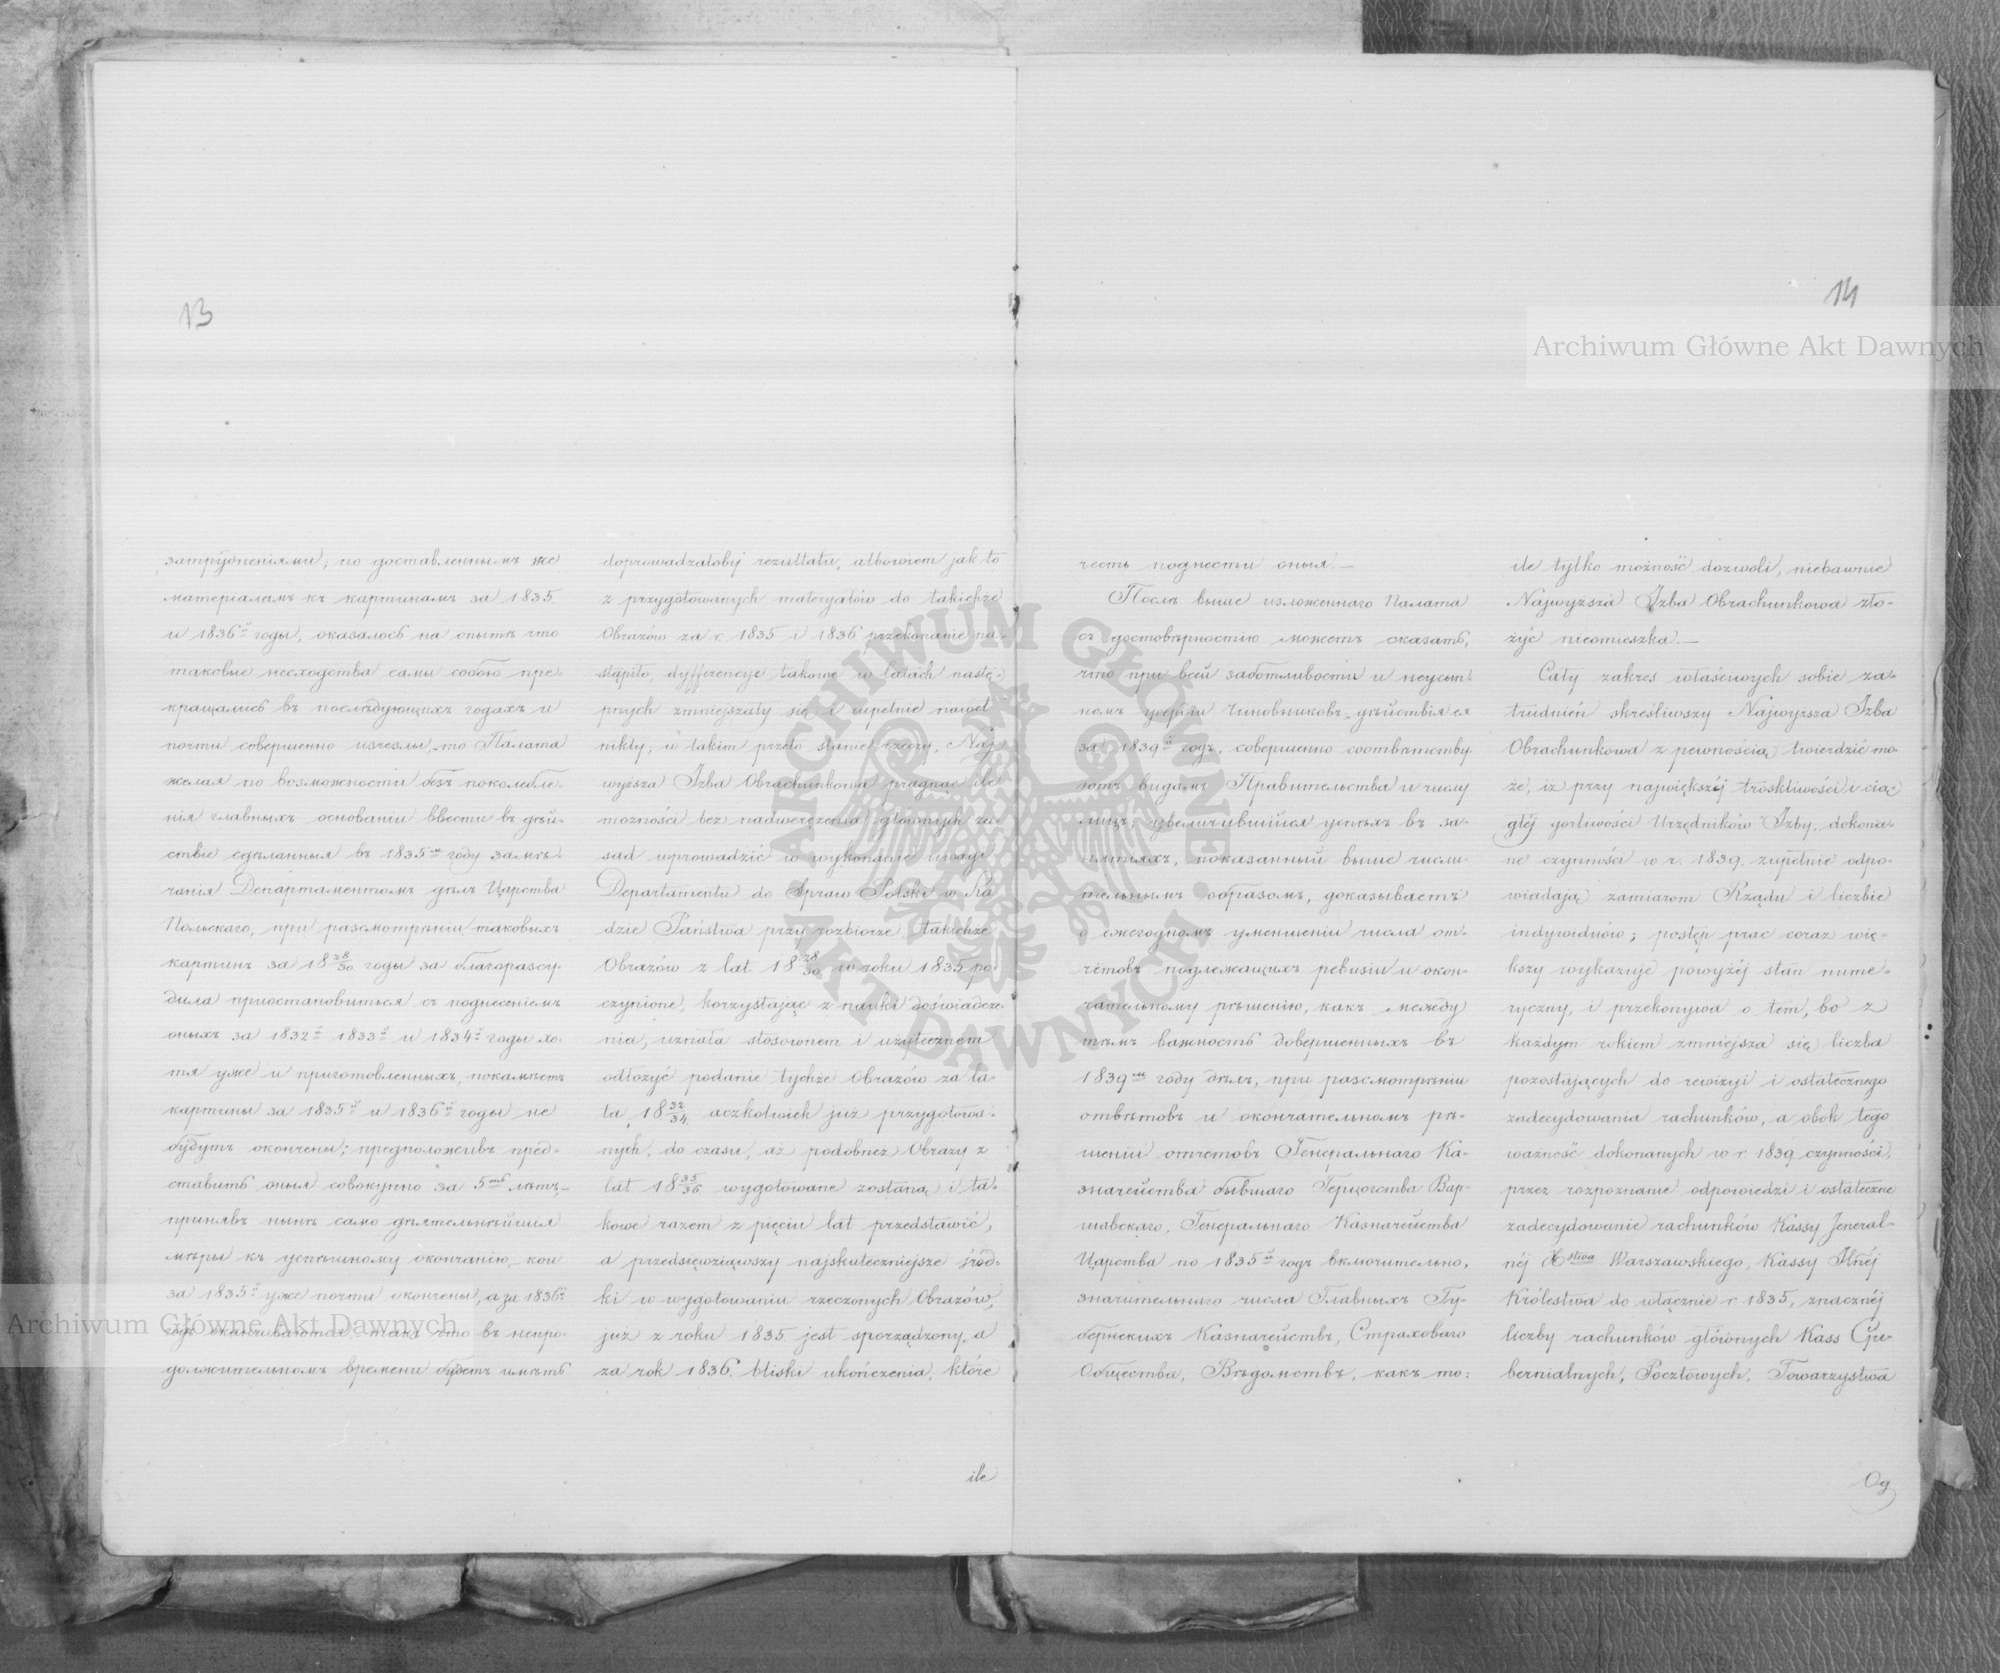 13
затрудненіями; по доставленнымъ же
матеріаламъ къ картинамъ за 1835.
и 1836й годы, оказалось на опытѣ что
таковые несходства сами собою пре-
кращались въ послѣдующихъ годахъ и
почти совершенно изчезли, то Палата
желая по возможности безъ поколебле-
нія главныхъ основаніи ввести въ дѣй-
ствіе сдѣланныя въ 1835мъ году замѣ-
чанія Департаментомъ дѣлъ Царства
Польскаго, при разсмотрѣніи таковыхъ
картинъ за 18 28/30 годы за благоразсу-
дила пріостановиться съ поднесеніемъ
оныхъ за 1832й 1833й и 1834й годы хо-
тя уже и приготовленныхъ, покамѣстъ
картины за 1835й и 1836й годы не
будутъ окончены; предположивъ пред-
ставить оныя совокупно за 5ть лѣтъ,-
принявъ нынѣ само дѣятельнѣйшія
мѣры къ успѣшному окончанію, кои
за 1835й уже почти окончены, а за 1836й
годъ оканчиваются, такъ что въ непро-
должительномъ времени будетъ имѣть
doprowadzałoby rezultatu, albowiem jak to
z przygotowanych materyałów do takichże
Obrazów za r. 1835 i 1836 przekonanie na-
stąpiło, dyfferencye takowe w latach nastę-
pnych zmniejszały się i zupełnie nawet
nikły; w takim przeto stanie rzeczy, Naj-
wyższa Izba Obrachunkowa pragnąc ile
możności bez nadwerężenia głównych za-
sad wprowadzić w wykonanie uwagi
Departamentu do Spraw Polski w Ra-
dzie Państwa przy rozbiorze takichże
Obrazów z lat 18 28/30 w roku 1835 po-
czynione, korzystając z nauki doświadcze-
nia, uznała stosownem i użytecznem
odłożyć podanie tychże Obrazów za la-
ta 18 32/34 aczkolwiek już przygotowa-
nych, do czasu, aż podobnez Obrazy z
lat 18 35/36 wygotowane zostaną i ta-
kowe razem z pięciu lat przedstawić,
a przedsięwziąwszy najskuteczniejsze śród-
ki w wygotowaniu rzeczonych Obrazów,
już z roku 1835 jest sporządzony, a
za rok 1836. bliski ukończenia, które
ile
14
честь поднести оныя.—
Послѣ выше изложеннаго Палата
съ достовѣрностію можетъ сказать,
что при всей заботливости и неусып-
номъ усердіи Чиновниковъ, дѣйствія ея
за 1839й годъ, совершенно соотвѣтству-
ютъ видамъ Правительства и числу
лицъ; увеличившійся успѣхъ въ за-
нятіяхъ, показанный выше числи-
тельнымъ образомъ, доказываетъ
о ежегодномъ уменьшеніи числа от-
чётовъ подлежащихъ ревизіи и окон-
чательному рѣшенію, какъ между
тѣмъ важность довершенныхъ въ
1839мъ году дѣлъ, при разсмотрѣніи
отвѣтовъ и окончательномъ рѣ-
шеніи отчетовъ Генеральнаго Ка-
значейства бывшаго Герцогства Вар-
шавскаго, Генеральнаго Казначейства
Царства по 1835й годъ включительно,
значительнаго числа Главныхъ Гу-
бернскихъ Казначействъ, Страховаго
Общества, Вѣдомствъ, какъ то:
ile tylko możność dozwoli, niebawnie
Najwyższa Izba Obrachunkowa zło-
żyć nieomieszka.—
Cały zakres właściwych sobie za-
trudnień skreśliwszy Najwyższa Izba
Obrachunkowa z pewnością twierdzić mo-
że, iż przy największéj troskliwości i cią-
głéj gorliwości Urzędników Izby, dokona-
ne czynności w r. 1839. zupełnie odpo-
wiadają zamiarom Rządu i liczbie
indywiduów; postęp prac coraz wię-
kszy wykazuje powyżéj stan nume-
ryczny, i przekonywa o tem, bo z
każdym rokiem zmniejsza się liczba
pozostających do rewizyi i ostatecznego
zadecydowania rachunków, a obok tego
ważność dokonanych w r. 1839 czynności,
przez rozpoznanie odpowiedzi i ostateczne
zadecydowanie rachunków Kassy Jeneral-
néj Xstwa Warszawskiego, Kassy Jłnéj
Królestwa do włącznie r. 1835, znacznéj
liczby rachunków głównych Kass Gu-
bernialnych, Pocztowych, Towarzystwa
Og
Archiwum Główne Akt Dawnych
Archiwum Główne Akt Dawnych
ARCHIWUM GŁÓWNE AKT DAWNYCH